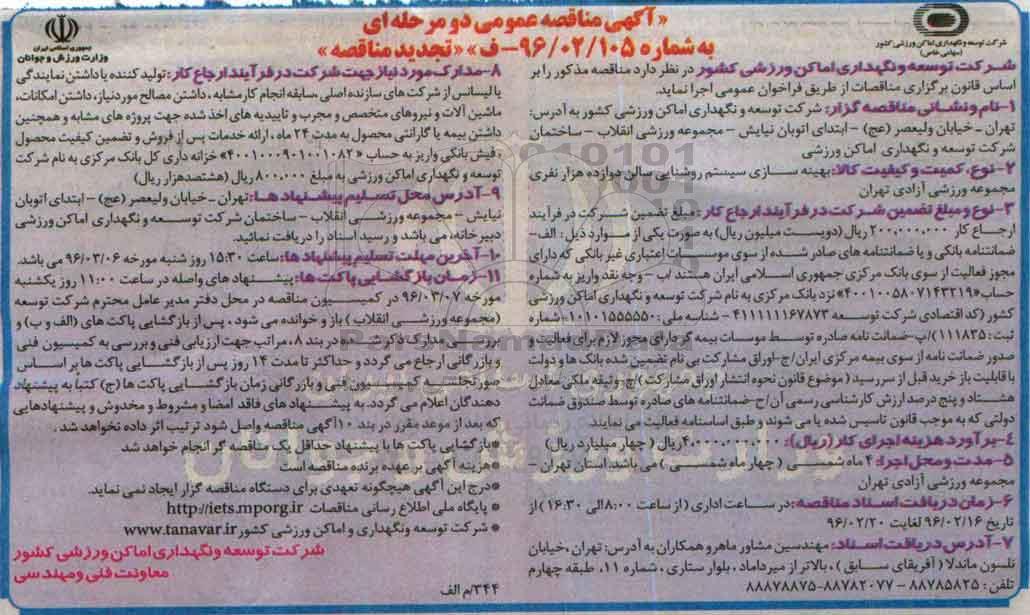 «آگهی مناقصه عمومی دو مرحله ای
به شماره ۹۶/۰۲/۱۰۵-ف» «تجدید مناقصه»
شرکت توسعه و نگهداری اماکن ورزشی کشور
(سهامی خاص)
جمهوری اسلامی ایران
وزارت ورزش و جوانان
شرکت توسعه و نگهداری اماکن ورزشی کشور در نظر دارد مناقصه مذکور را بر
اساس قانون برگزاری مناقصات از طریق فراخوان عمومی اجرا نماید.
۱-نام و نشانی مناقصه گزار: شرکت توسعه و نگهداری اماکن ورزشی کشور به آدرس:
تهران - خیابان ولیعصر (عج) - ابتدای اتوبان نیایش - مجموعه ورزشی انقلاب - ساختمان
شرکت توسعه و نگهداری اماکن ورزشی
۲-نوع، کمیت و کیفیت کالا: بهینه سازی سیستم روشنایی سالن دوازده هزار نفری
مجموعه ورزشی آزادی تهران
۳-نوع و مبلغ تضمین شرکت در فرآیند ارجاع کار: مبلغ تضمین شرکت در فرآیند
ارجاع کار ۲۰۰,۰۰۰,۰۰۰ ریال (دویست میلیون ریال) به صورت یکی از موارد ذیل: الف-
ضمانتنامه بانکی و یا ضمانتنامه های صادره شده از سوی موسسات اعتباری غیر بانکی که دارای
مجوز فعالیت از سوی بانک مرکزی جمهوری اسلامی ایران هستند /ب - وجه نقد واریز به شماره
حساب «۴۰۰۱۰۰۵۸۰۷۱۴۳۲۱۹» نزد بانک مرکزی به نام شرکت توسعه و نگهداری اماکن ورزشی
کشور (کد اقتصادی شرکت توسعه ۴۱۱۱۱۱۱۶۷۸۷۳ - شناسه ملی: ۱۰۱۰۱۵۵۵۵۵۰ - شماره
ثبت: ۱۱۱۸۳۵)/پ-ضمانت نامه صادره توسط موسسات بیمه گر دارای مجوز لازم برای فعالیت و
صدور ضمانت نامه از سوی بیمه مرکزی ایران/ج-اوراق مشارکت بی نام تضمین شده بانک ها و دولت
با قابلیت باز خرید قبل از سررسید (موضوع قانون نحوه انتشار اوراق مشارکت)/چ-وثیقه ملکی معادل
هشتاد و پنج درصد ارزش کارشناسی رسمی آن/ح-ضمانتنامه های صادره توسط صندوق ضمانت
دولتی که به موجب قانون تاسیس شده یا می شوند و طبق اساسنامه فعالیت می نمایند.
۴-برآورد هزینه اجرای کار (ریال): ۴,۰۰۰,۰۰۰,۰۰۰ ریال (چهار میلیارد ریال)
۵-مدت و محل اجرا: ۴ ماه شمسی (چهار ماه شمسی) می باشد. استان تهران -
مجموعه ورزشی آزادی تهران
۶-زمان دریافت اسناد مناقصه: در ساعات اداری (از ساعت ۸:۰۰ الی ۱۶:۳۰) از
تاریخ ۹۶/۰۲/۱۶ لغایت ۹۶/۰۲/۲۰
۷-آدرس دریافت اسناد: مهندسین مشاور ماهر و همکاران به آدرس: تهران، خیابان
نلسون ماندلا (آفریقای سابق)، بالاتر از میرداماد، بلوار ستاری، شماره ۱۱، طبقه چهارم
تلفن: ۸۸۷۸۵۸۲۵ - ۸۸۷۸۲۰۷۷-۸۸۸۷۸۸۷۵
۸-مدارک مورد نیاز جهت شرکت در فرآیند ارجاع کار: تولید کننده یا داشتن نمایندگی
یا لیسانس از شرکت های سازنده اصلی، سابقه انجام کار مشابه، داشتن مصالح مورد نیاز، داشتن امکانات،
ماشین آلات و نیروهای متخصص و مجرب و تاییدیه های اخذ شده جهت پروژه های مشابه و همچنین
داشتن بیمه یا گارانتی محصول به مدت ۲۴ ماه، ارائه خدمات پس از فروش و تضمین کیفیت محصول
، فیش بانکی واریز به حساب «۴۰۰۱۰۰۰۹۰۱۰۰۱۰۸۲» خزانه داری کل بانک مرکزی به نام شرکت
توسعه و نگهداری اماکن ورزشی به مبلغ ۸۰۰,۰۰۰ ریال (هشتصد هزار ریال)
۹-آدرس محل تسلیم پیشنهاد ها: تهران - خیابان ولیعصر (عج) - ابتدای اتوبان
نیایش - مجموعه ورزشی انقلاب - ساختمان شرکت توسعه و نگهداری اماکن ورزشی
دبیرخانه، می باشد و رسید اسناد را دریافت نمائید.
۱۰-آخرین مهلت تسلیم پیشنهاد ها: ساعت ۱۵:۳۰ روز شنبه مورخه ۹۶/۰۳/۰۶ می باشد.
۱۱-زمان بازگشایی پاکت ها: پیشنهاد های واصله در ساعت ۱۱:۰۰ روز یکشنبه
مورخه ۹۶/۰۳/۰۷ در کمیسیون مناقصه در محل دفتر مدیر عامل محترم شرکت توسعه
(مجموعه ورزشی انقلاب) باز و خوانده می شود، پس از بازگشایی پاکت های (الف و ب) و
بررسی مدارک ذکر شده در بند ۸، مراتب جهت ارزیابی فنی و بررسی به کمیسیون فنی
و بازرگانی ارجاع می گردد و حداکثر تا مدت ۱۴ روز پس از بازگشایی پاکت ها بر اساس
صورتجلسه کمیسیون فنی و بازرگانی زمان بازگشایی پاکت ها (ج) کتبا به پیشنهاد
دهندگان اعلام می گردد. به پیشنهاد های فاقد امضا و مشروط و مخدوش و پیشنهادهایی
که بعد از موعد مقرر در بند ۱۰ آگهی مناقصه واصل شود ترتیب اثر داده نخواهد شد.
*بازگشایی پاکت ها با پیشنهاد حداقل یک مناقصه گر انجام خواهد شد
*هزینه آگهی بر عهده برنده مناقصه است
*درج این آگهی هیچگونه تعهدی برای دستگاه مناقصه گزار ایجاد نمی نماید.
* پایگاه ملی اطلاع رسانی مناقصات http://iets.mporg.ir
* شرکت توسعه ونگهداری و اماکن ورزشی کشور www.tanavar.ir
شرکت توسعه و نگهداری اماکن ورزشی کشور
معاونت فنی و مهندسی
۳۴۴/م الف